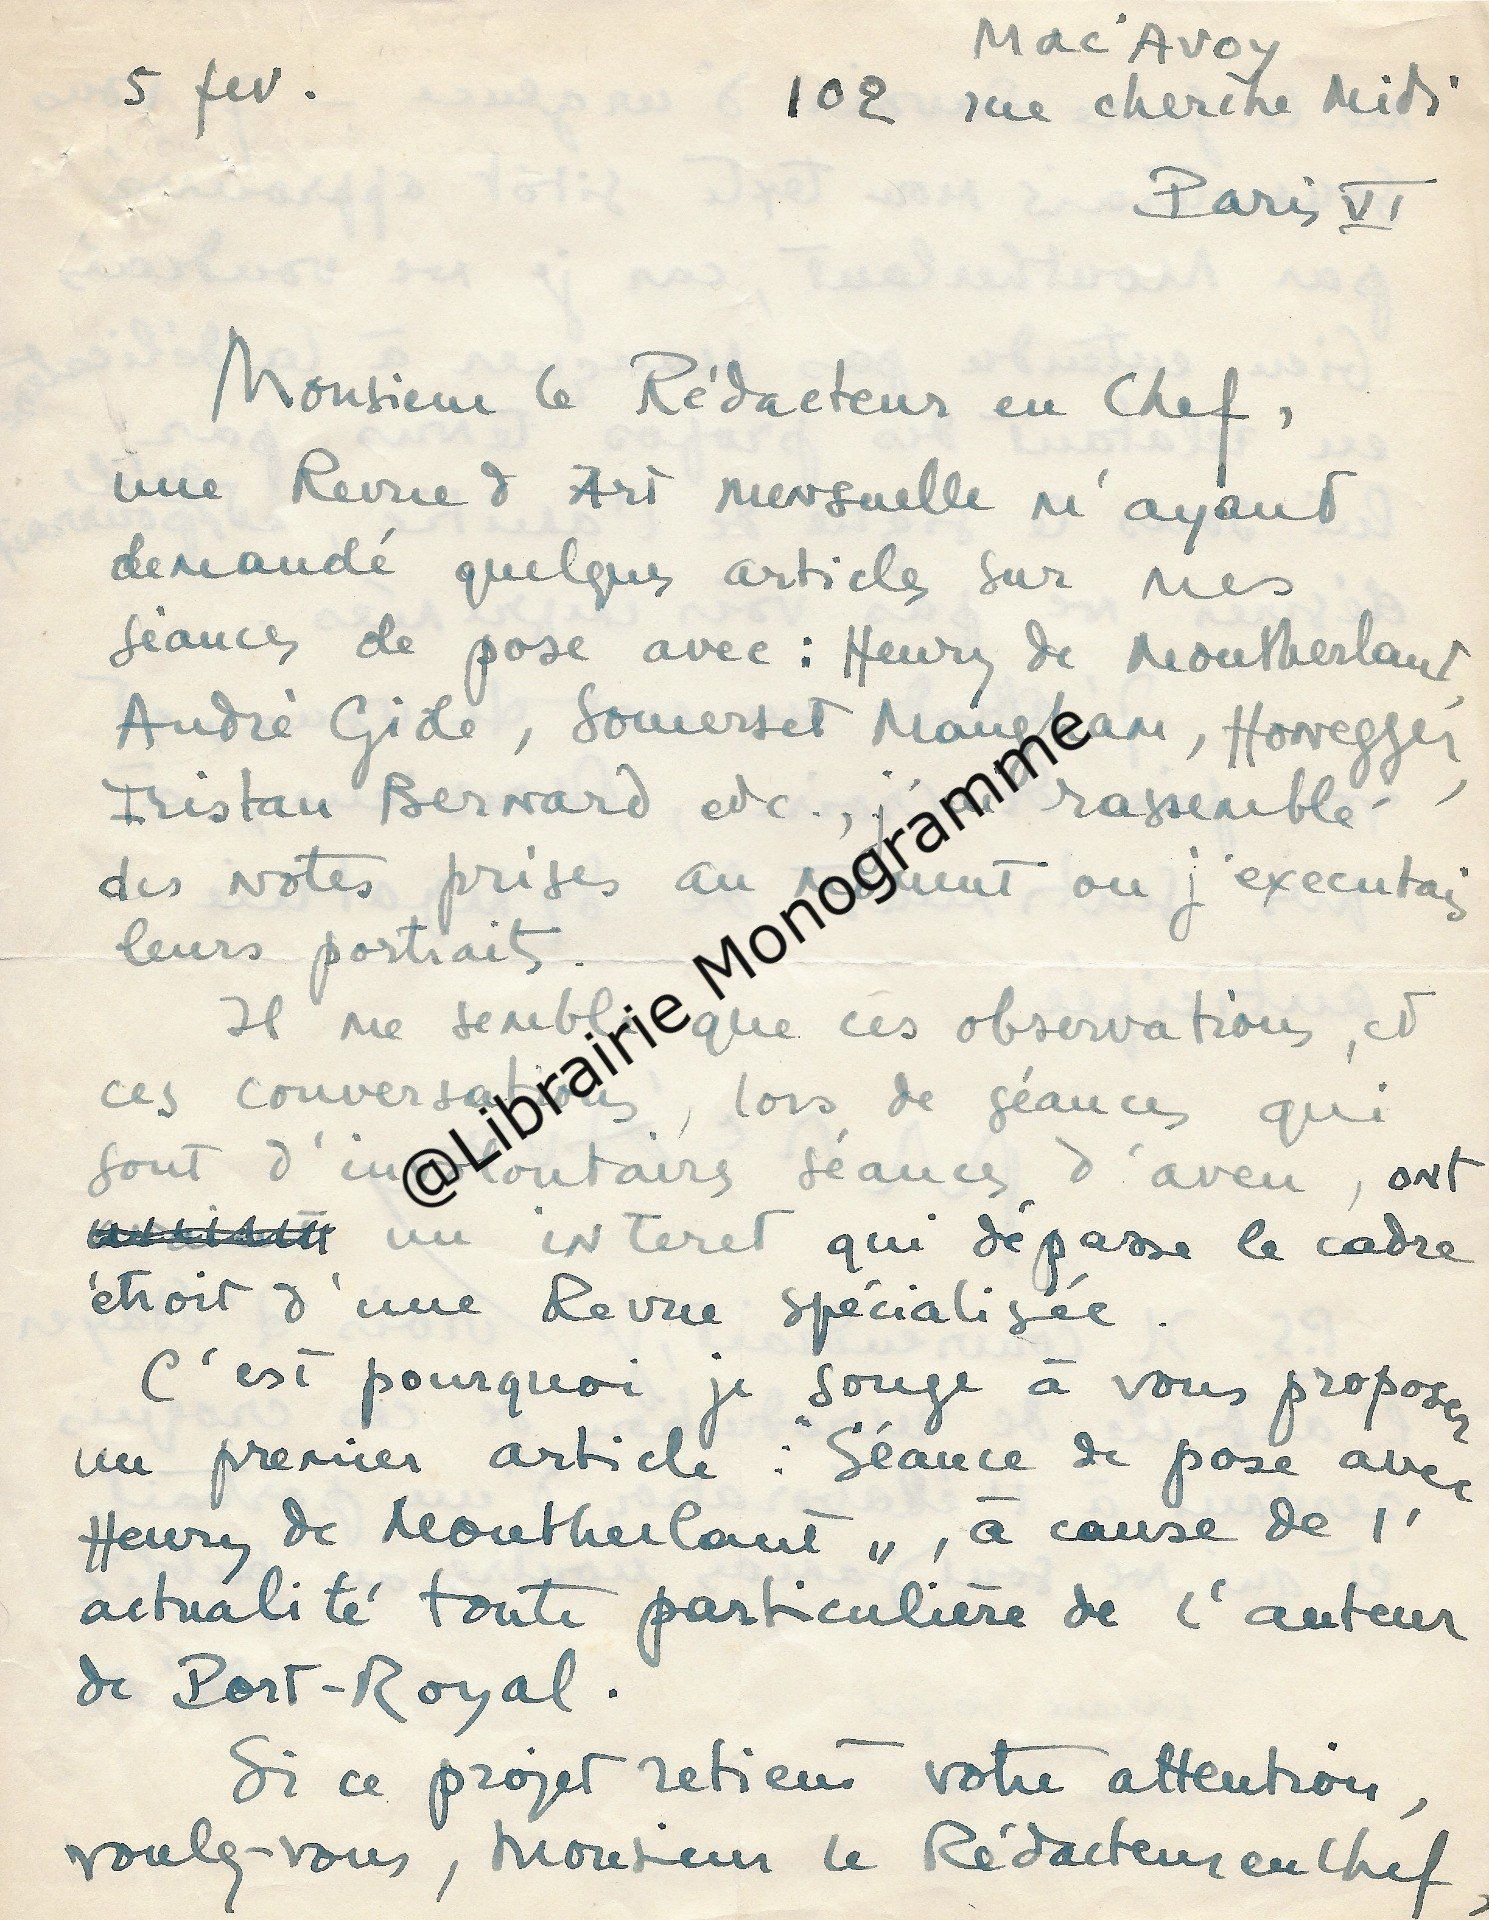 Mac'Avoy
5 fev. 102 rue cherche Midi
Paris VI
Monsieur le Rédacteur en Chef,
une Revue d'Art mensuelle m'ayant
demandé quelques articles sur mes
séances de pose avec : Henry de Montherlant,
André Gide, Somerset Maugham, Honegger,
Tristan Bernard etc., j'ai rassemblé
des notes prises au moment ou j'executais
leurs portraits.
Il me semble que ces observations, et
ces conversations, lors de séances qui
sont d'involontaires séances d'aveu, ont
un interet qui dépasse le cadre
étroit d'une Revue spécialisée.
C'est pourquoi je songe à vous proposer
un premier article : "Séance de pose avec
Henry de Montherlant", à cause de l'
actualité toute particulière de l'auteur
de Port-Royal.
Si ce projet retient votre attention,
voulez-vous, Monsieur le Rédacteur en Chef,
@Librairie Monogramme